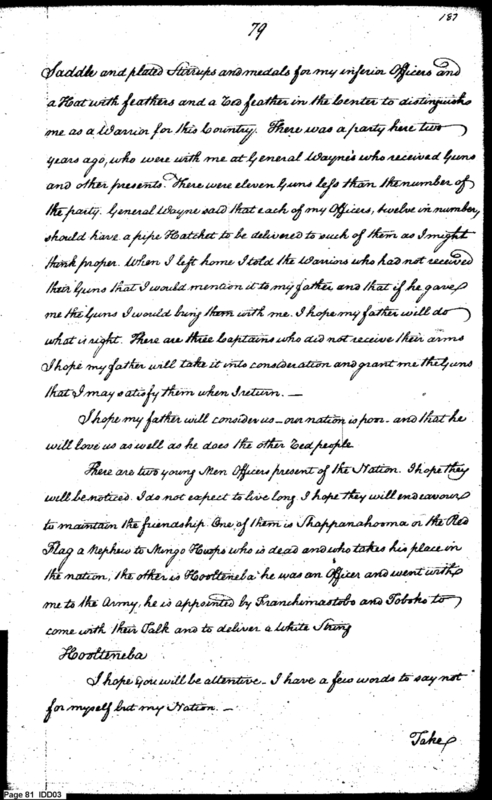 187
79
Saddle and plated Stirrups and medals for my inferior Officers and
a Hat with feathers and a Red feather in the Center to distinguish
me as a Warrior for this Country. There was a party here two
years ago, who were with me at General Wayne's who received Guns
and other presents. There were eleven Guns less than the number of
the party. General Wayne said that each of my Officers, twelve in number,
should have a pipe Hatchet to be delivered to such of them as I might
think proper. When I left home I told the Warriors who had not received
their Guns that I would mention it to my father and that if he gave
me the Guns I would bring them with me. I hope my father will do
what is right. There are three Captains who did not receive their arms
I hope my father will take it into consideration and grant me the Guns
that I may satisfy them when I return. —
I hope my father will consider us – our nation is poor – and that he
will love us as well as he does the other Red people
There are two young Men Officers present of the Nation. I hope they
will be noticed. I do not expect to live long I hope they will endeavour
to maintain the friendship. One of them is Shappanahooma or the Red
Flag a Nephew to Mingo Hoops who is dead and who takes his place in
the nation, the other is Hoolteneba he was an Officer and went with
me to the Army, he is appointed by Franchimastobo and Toboko to
come with their Talk and to deliver a White String
Hoolteneba
I hope you will be attentive – I have a few words to say not
for myself but my Nation. —
Take
Page 81 IDD03